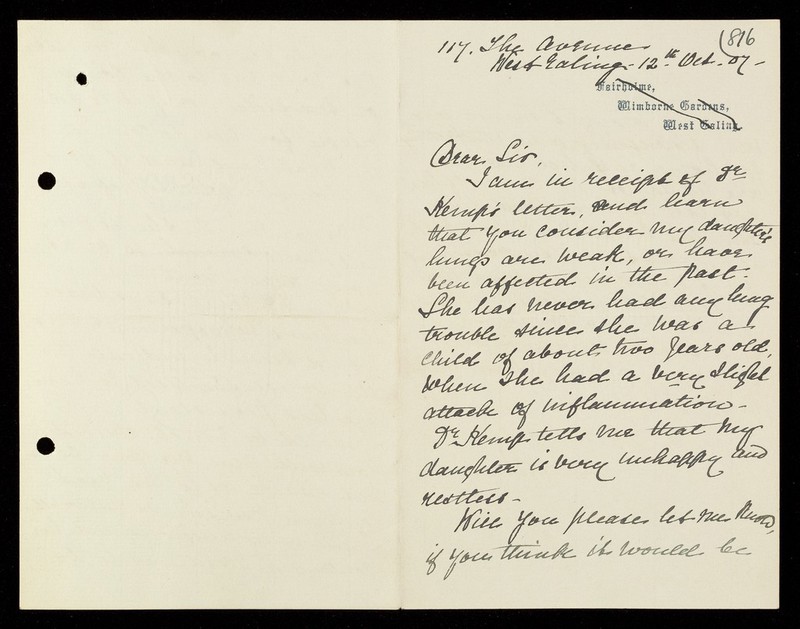 816
117. The Avenue
West Ealing. 12th Oct. 07-
Fairholme,
Wimborne Gardens,
West Ealing.
Dear Sir,
I am in receipt of Dr
Kemp's letter, and learn
that you consider my daughter's
lungs are weak, or have
been affected in the past.
She has never had any lung
trouble since she was a
child of about two years old,
when she had a very slight
attack of inflammation-
Dr Kemp tells me that my
daughter is very unhappy and
restless-
Will you please let me know,
if you think it would be